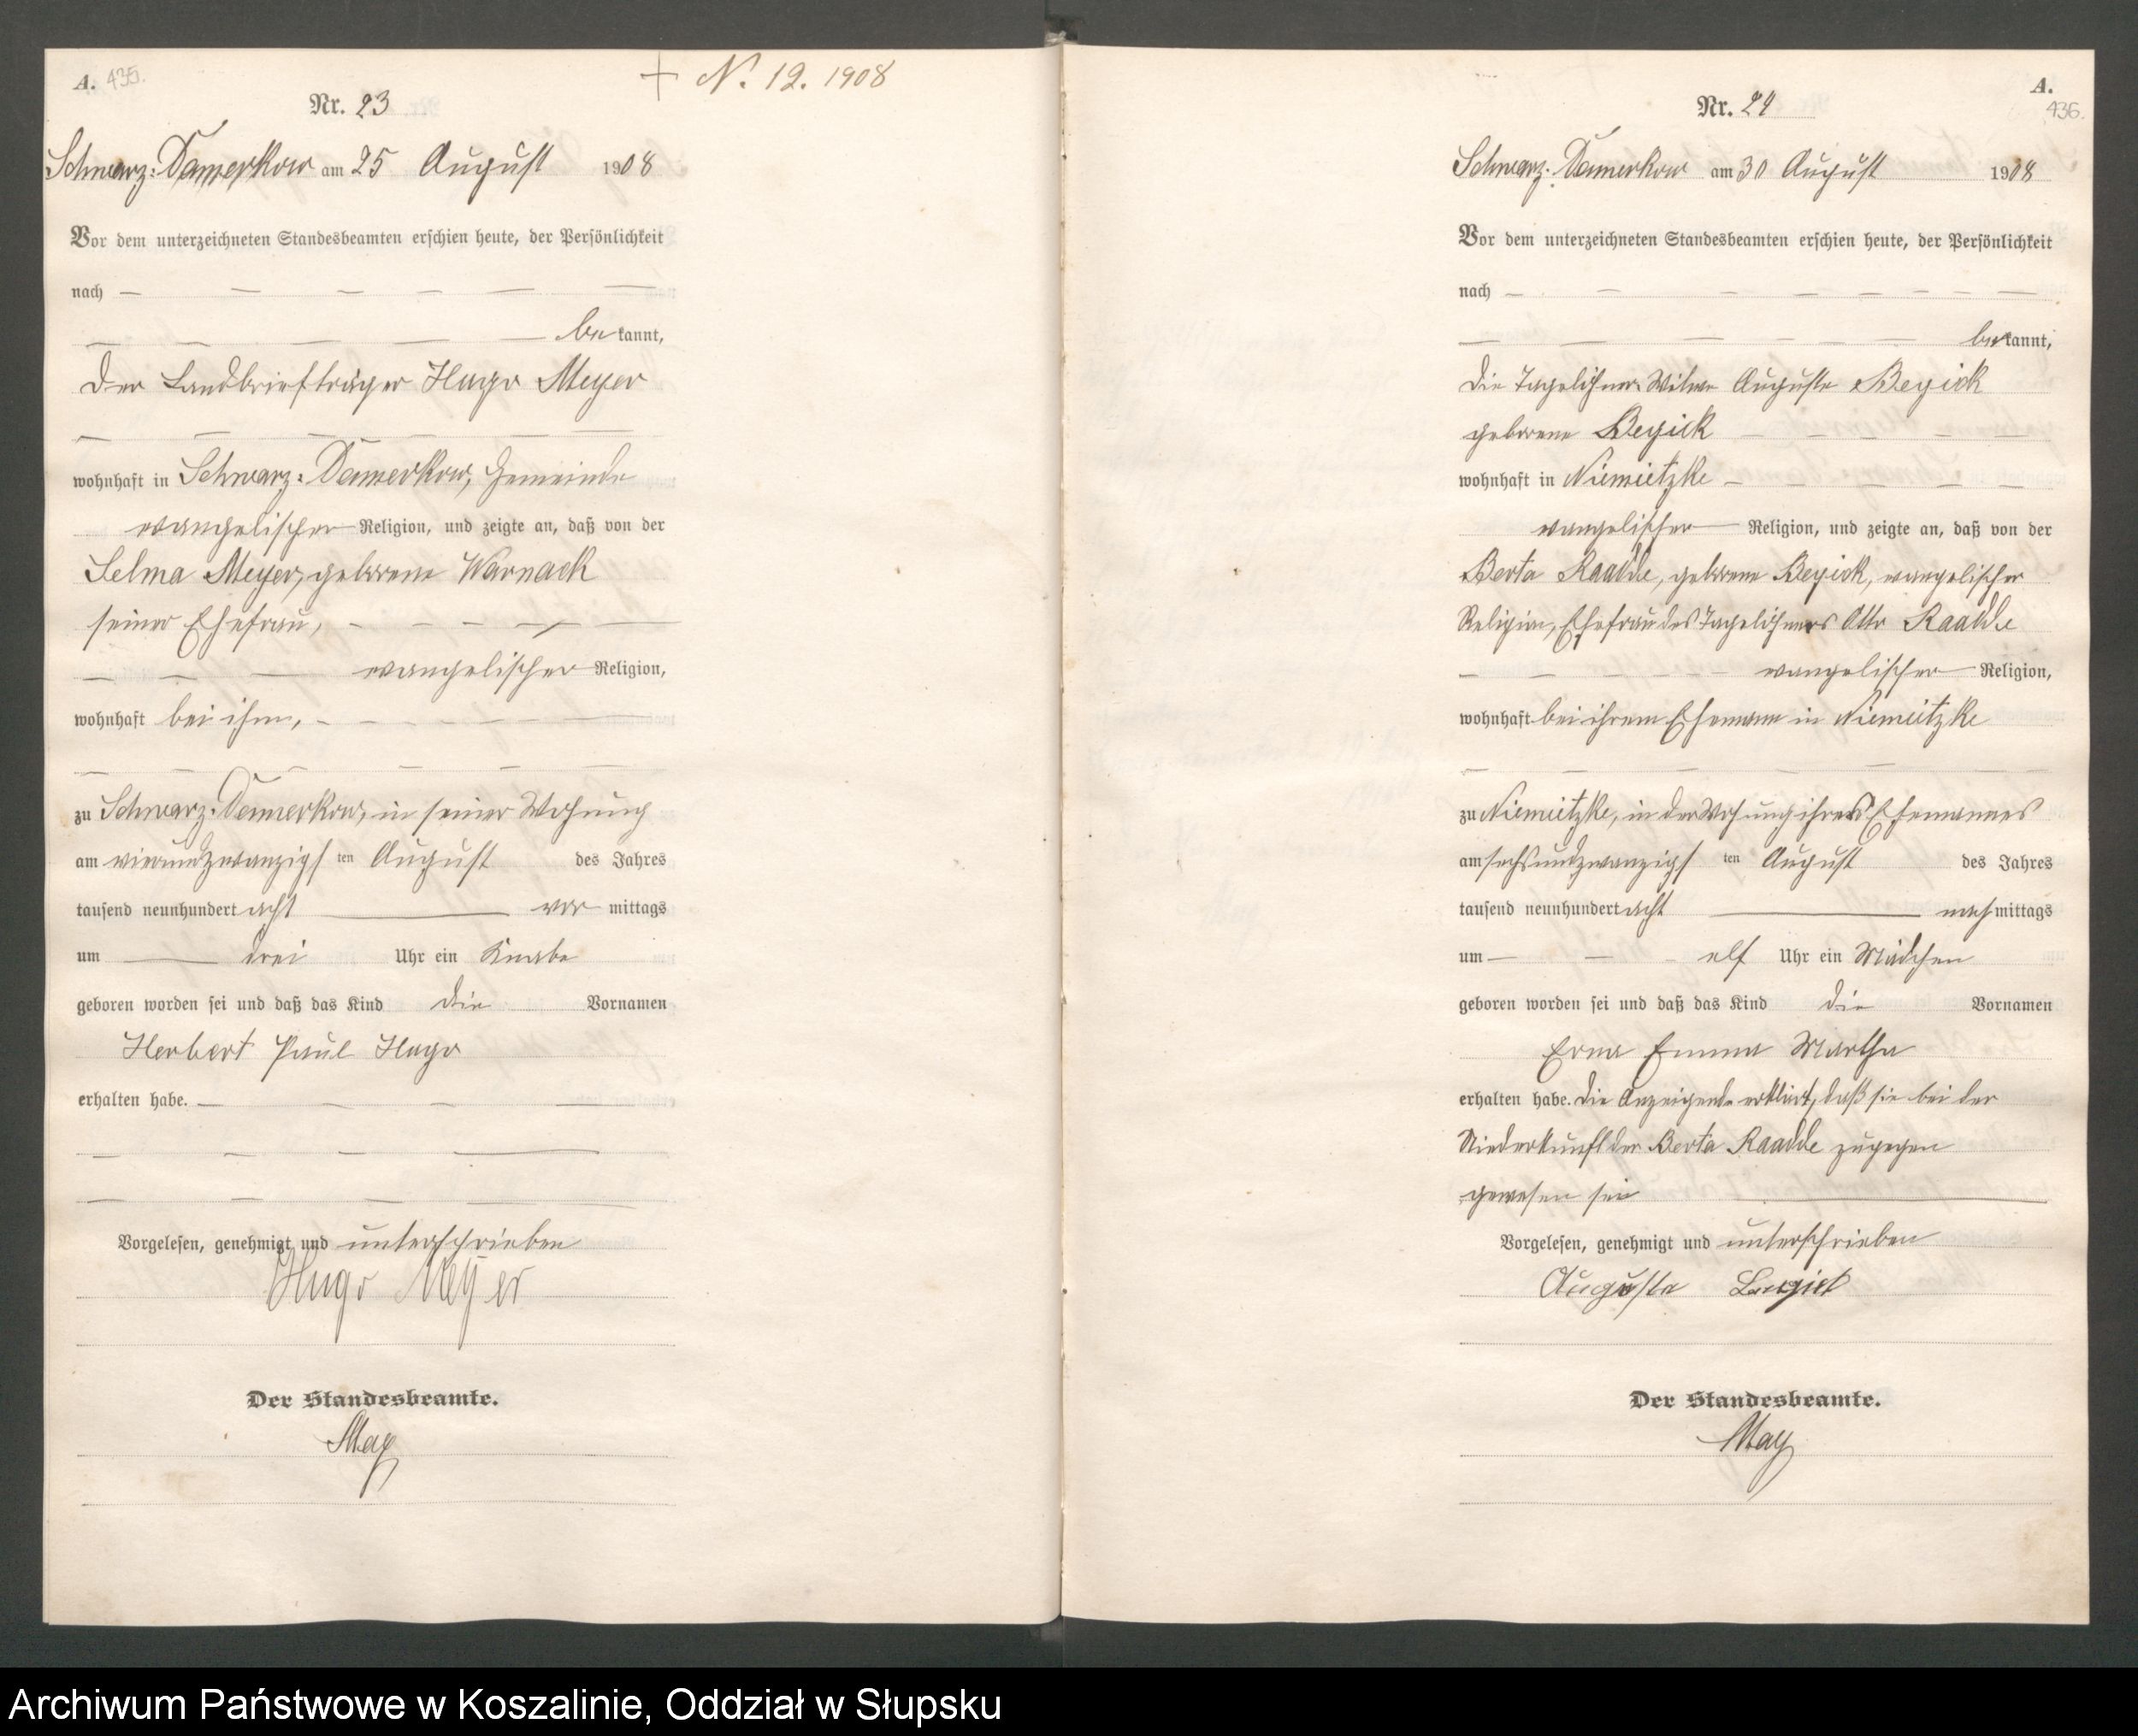 A. 435.
+ N. 12. 1908
Nr. 23
Schwarz-Damerkow am 25 August 1908
Vor dem unterzeichneten Standesbeamten erschien heute, der Persönlichkeit
nach — — — — — —
— — — — — — bekannt,
der Landbriefträger Hugo Meyer
— — — — — —
wohnhaft in Schwarz-Damerkow, Gemeinde
evangelischer Religion, und zeigte an, daß von der
Selma Meyer, geborene Warnack
seiner Ehefrau, — — — — —
— — — evangelischer Religion,
wohnhaft bei ihm, — — — — —
— — — — — —
zu Schwarz-Damerkow, in seiner Wohnung
am vierundzwanzigsten August des Jahres
tausend neunhundert acht — vor mittags
um — drei Uhr ein Knabe
geboren worden sei und daß das Kind die Vornamen
Herbert Paul Hugo
erhalten habe. — — — —
— — — —
— — — —
Vorgelesen, genehmigt und unterschrieben
Hugo Meyer
Der Standesbeamte.
May
A.
436.
Nr. 24
Schwarz-Damerkow am 30 August 1908
Vor dem unterzeichneten Standesbeamten erschien heute, der Persönlichkeit
nach — — — — — — —
— — — — — — bekannt,
die Tagelöhner-Witwe Auguste Begick
geborene Begick — — — — —
wohnhaft in Niemietzke — — — — —
evangelischer — Religion, und zeigte an, daß von der
Berta Raadde, geborene Begick, evangelischer
Religion, Ehefrau des Tagelöhners Otto Raadde
— — — — evangelischer Religion,
wohnhaft bei ihrem Ehemann in Niemietzke
— — — — — —
zu Niemietzke, in der Wohnung ihres Ehemannes
am sechsundzwanzigsten August des Jahres
tausend neunhundert acht — nachmittags
um — — - elf Uhr ein Mädchen
geboren worden sei und daß das Kind die Vornamen
Erna Emma Martha
erhalten habe. Die Anzeigende erklärt, daß sie bei der
Niederkunft der Berta Raadde zugegen
gewesen sei —
Vorgelesen, genehmigt und unterschrieben
Auguste Begick
Der Standesbeamte.
May
Archiwum Państwowe w Koszalinie, Oddział w Słupsku